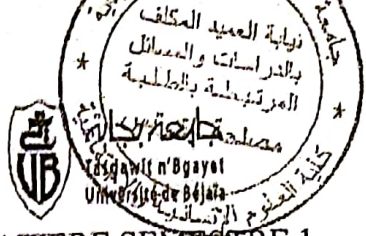 جامعة
نيابة العميد المكلف
بالدراسات والمسائل
المرتبطة بالطلبة
مصلحة
جامعة بجاية
Tasdawit n'Bgayet
Université de Béjaïa
UB
كلية العلوم الإنسانية
SEMESTRE 1